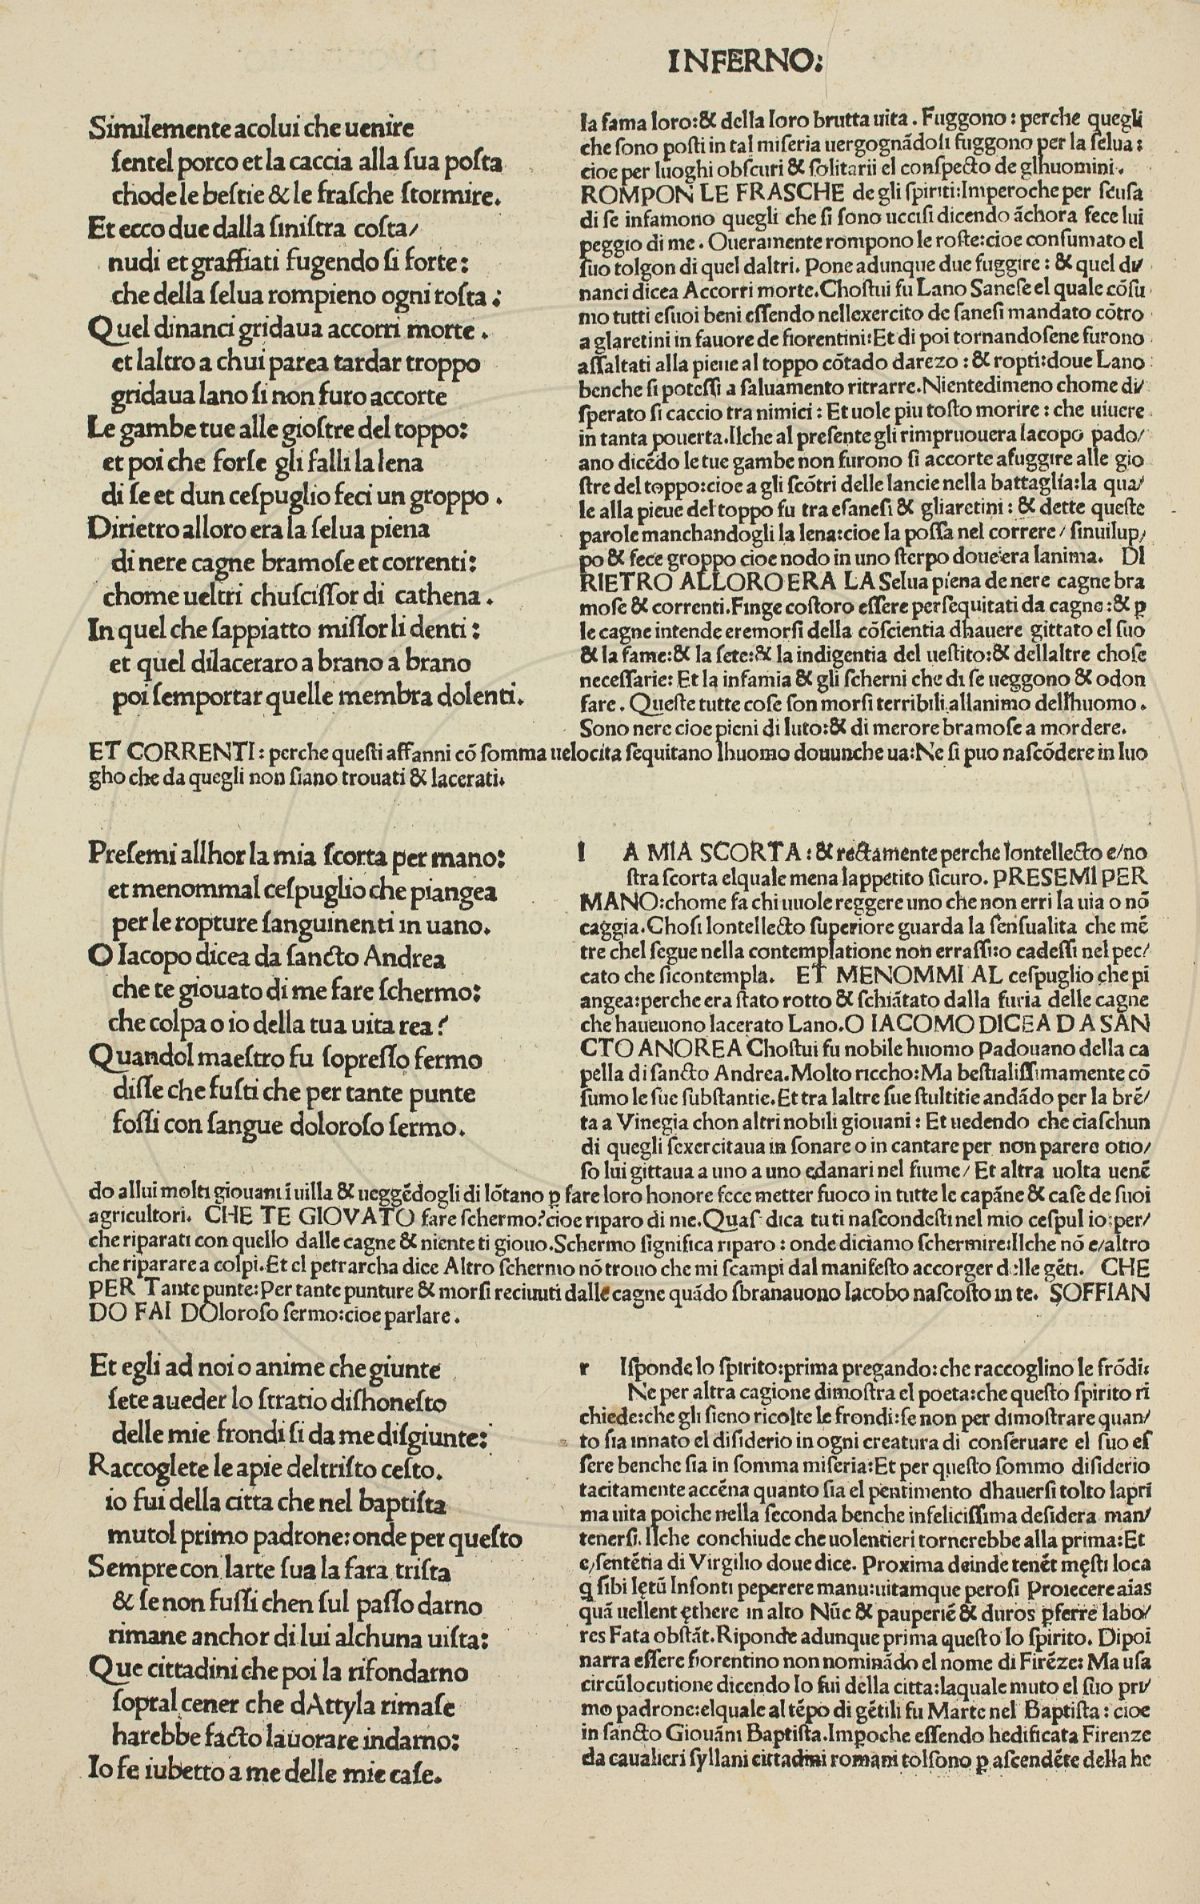 INFERNO:
Similemente acolui che uenire
ſentel porco et la caccia alla ſua poſta
chode le beſtie & le fraſche ſtormire.
Et ecco due dalla ſiniſtra coſta/
nudi et graffiati fugendo ſi forte:
che della ſelua rompieno ogni roſta:
Quel dinanci gridaua accorri morte.
et laltro a chui parea tardar troppo
gridaua lano ſi non furo accorte
Le gambe tue alle gioſtre del toppo:
et poi che forſe gli falli la lena
di ſe et dun ceſpuglio feci un groppo.
Dirietro alloro era la ſelua piena
di nere cagne bramoſe et correnti:
chome ueltri chuſciſſor di cathena.
In quel che ſappiatto miſſor li denti:
et quel dilaceraro a brano a brano
poi ſemportar quelle membra dolenti.
la fama loro:& della loro brutta uita. Fuggono: perche quegli
che ſono poſti in tal miſeria uergognãdoſi fuggono per la ſelua:
cioe per luoghi obſcuri & ſolitarii el conſpecto de glhuomini.
ROMPON LE FRASCHE de gli ſpiriti:Imperoche per ſcuſa
di ſe infamono quegli che ſi ſono ucciſi dicendo ãchora fece lui
peggio di me. Oueramente rompono le roſte:cioe conſumato el
ſuo tolgon di quel daltri. Pone adunque due fuggire: & quel di/
nanci dicea Accorri morte.Choſtui fu Lano Saneſe el quale cõſu
mo tutti eſuoi beni eſſendo nellexercito de ſaneſi mandato cõtro
a glaretini in fauore de fiorentini:Et di poi tornandoſene furono
aſſaltati alla pieue al toppo cõtado darezo: & ropti:doue Lano
benche ſi poteſſi a ſaluamento ritrarre.Nientedimeno chome di/
ſperato ſi caccio tra nimici: Et uole piu toſto morire: che uiuere
in tanta pouerta.Ilche al preſente gli rimpruouera Iacopo pado/
ano dicẽdo le tue gambe non furono ſi accorte afuggire alle gio
ſtre del toppo:cioe a gli ſcõtri delle lancie nella battaglia:la qua/
le alla pieue del toppo fu tra eſaneſi & gliaretini: & dette queſte
parole manchandogli la lena:cioe la poſſa nel correre/ ſinuilup/
po & fece groppo cioe nodo in uno ſterpo doue era lanima. DI
RIETRO ALLORO ERA LA Selua piena de nere cagne bra
moſe & correnti.Finge coſtoro eſſere perſequitati da cagne:& ꝑ
le cagne intende eremorſi della cõſcientia dhauere gittato el ſuo
& la fame:& la ſete:& la indigentia del ueſtito:& dellaltre choſe
neceſſarie: Et la infamia & gli ſcherni che di ſe ueggono & odon
fare. Queſte tutte coſe ſon morſi terribili allanimo dellhuomo.
Sono nere cioe pieni di luto:& di merore bramoſe a mordere.
ET CORRENTI: perche queſti affanni cõ ſomma uelocita ſequitano lhuomo dounche ua:Ne ſi puo naſcõdere in luo
gho che da quegli non ſiano trouati & lacerati.
Preſemi allhor la mia ſcorta per mano:
et menommal ceſpuglio che piangea
per le ropture ſanguinenti in uano.
O Iacopo dicea da ſancto Andrea
che te giouato di me fare ſchermo:
che colpa o io della tua uita rea?
Quandol maeſtro fu ſopreſſo fermo
diſſe che fuſti che per tante punte
foſſi con ſangue doloroſo ſermo.
l A MIA SCORTA: & rectamente perche lontellecto e/no
ſtra ſcorta elquale mena lappetito ſicuro. PRESEMI PER
MANO:chome fa chi uuole reggere uno che non erri la uia o nõ
caggia. Choſi lontellecto ſuperiore guarda la ſenſualita che mẽ
tre chel ſegue nella contemplatione non erraſſi:o cadeſſi nel pec/
cato che ſicontempla. ET MENOMMI AL ceſpuglio che pi
angea:perche era ſtato rotto & ſchiãtato dalla furia delle cagne
che haueuono lacerato Lano.O IACOMO DICEA DA SAN
CTO ANOREA Choſtui fu nobile huomo Padouano della ca
pella di ſancto Andrea.Molto riccho:Ma beſtialiſſimamente cõ
ſumo le ſue ſubſtantie.Et tra laltre ſue ſtultitie andãdo per la brẽ/
ta a Vinegia chon altri nobili giouani: Et uedendo che ciaſchun
di quegli ſexercitaua in ſonare o in cantare per non parere otio/
ſo lui gittaua a uno a uno edanari nel fiume/ Et altra uolta uenẽ
do allui molti giouani ĩ uilla & ueggẽdogli di lõtano ꝑ fare loro honore fece metter fuoco in tutte le capãne & caſe de ſuoi
agricultori. CHE TE GIOVATO fare ſchermo?cioe riparo di me.Quaſ dica tu ti naſcondeſti nel mio ceſpul io:per/
che riparati con quello dalle cagne & niente ti giouo.Schermo ſignifica riparo: onde diciamo ſchermire:Ilche nõ e/altro
che riparare a colpi.Et el petrarcha dice Altro ſchermo nõ trouo che mi ſcampi dal manifeſto accorger delle gẽti. CHE
PER Tante punte:Per tante punture & morſi reciuuti dalle cagne quãdo ſbranauono Iacobo naſcoſto in te. SOFFIAN
DO FAI DOloroſo ſermo:cioe parlare.
Et egli ad noi o anime che giunte
ſete aueder lo ſtratio diſhoneſto
delle mie frondi ſi da me diſgiunte:
Raccoglete le apie deltriſto ceſto.
io fui della citta che nel baptiſta
mutol primo padrone:onde per queſto
Sempre con larte ſua la fara triſta
& ſe non fuſſi chen ſul paſſo darno
rimane anchor di lui alchuna uiſta:
Que cittadini che poi la rifondarno
ſopral cener che dAttyla rimaſe
harebbe facto lauorare indarno:
Io fe iubetto a me delle mie caſe.
r Iſponde lo ſpirito:prima pregando:che raccoglino le frõdi:
Ne per altra cagione dimoſtra el poeta:che queſto ſpirito ri
chiede:che gli ſieno ricolte le frondi:ſe non per dimoſtrare quan/
to ſia innato el diſiderio in ogni creatura di conſeruare el ſuo eſ
ſere benche ſia in ſomma miſeria:Et per queſto ſommo diſiderio
tacitamente accẽna quanto ſia el pentimento dhauerſi tolto lapri
ma uita poiche nella ſeconda benche infeliciſſima deſidera man/
tenerſi. Ilche conchiude che uolentieri tornerebbe alla prima:Et
e/ſentẽtia di Virgilio doue dice. Proxima deinde tenẽt męſti loca
q̃ ſibi lętũ Inſonti peperere manu:uitamque peroſi Proiecere aĩas
quã uellent ęthere in alto Nũc & pauperiẽ & duros ꝑferre labo/
res Fata obſtãt.Riponde adunque prima queſto lo ſpirito. Dipoi
narra eſſere fiorentino non nominãdo el nome di Firẽze: Ma uſa
circũlocutione dicendo Io fui della citta:laquale muto el ſuo pri/
mo padrone:elquale al tẽpo di gẽtili fu Marte nel Baptiſta: cioe
in ſancto Giouãni Baptiſta.Impoche eſſendo hedificata Firenze
da caualieri ſyllani cittadini romani tolſono ꝑ aſcendẽte della he